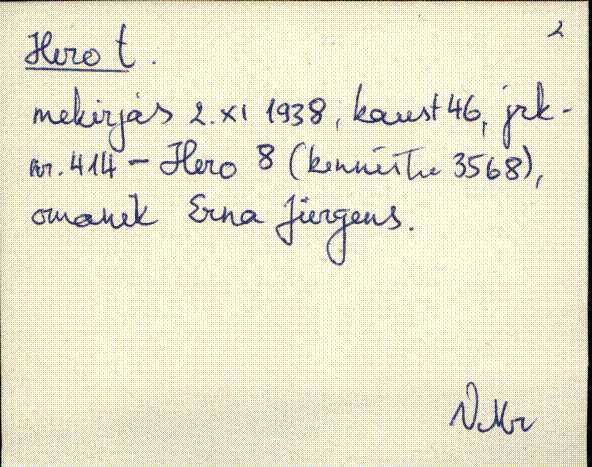 2
Hero t.
mekirjas 2. XI 1938, kaust 46, jrk-
nr. 414 – Hero 8 (kinnistu 3568),
omanik Erna Jürgens.